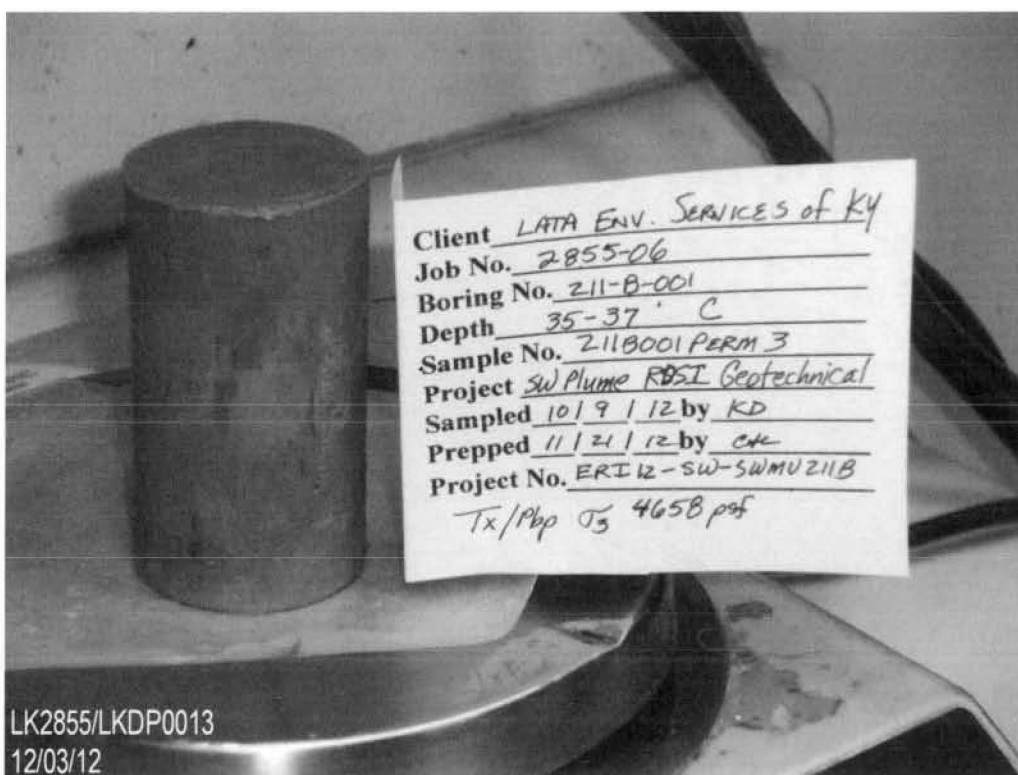 Client LATA ENV. SERVICES of KY
Job No. 2855-06
Boring No. 211-B-001
Depth 35-37' C
Sample No. 211B001 PERM 3
Project SW Plume RDSI Geotechnical
Sampled 10/9/12 by KD
Prepped 11/21/12 by
Project No. ERI12-SW-SWMU211B
Tx/Pbp σ3 4658 psf
LK2855/LKDP0013
12/03/12